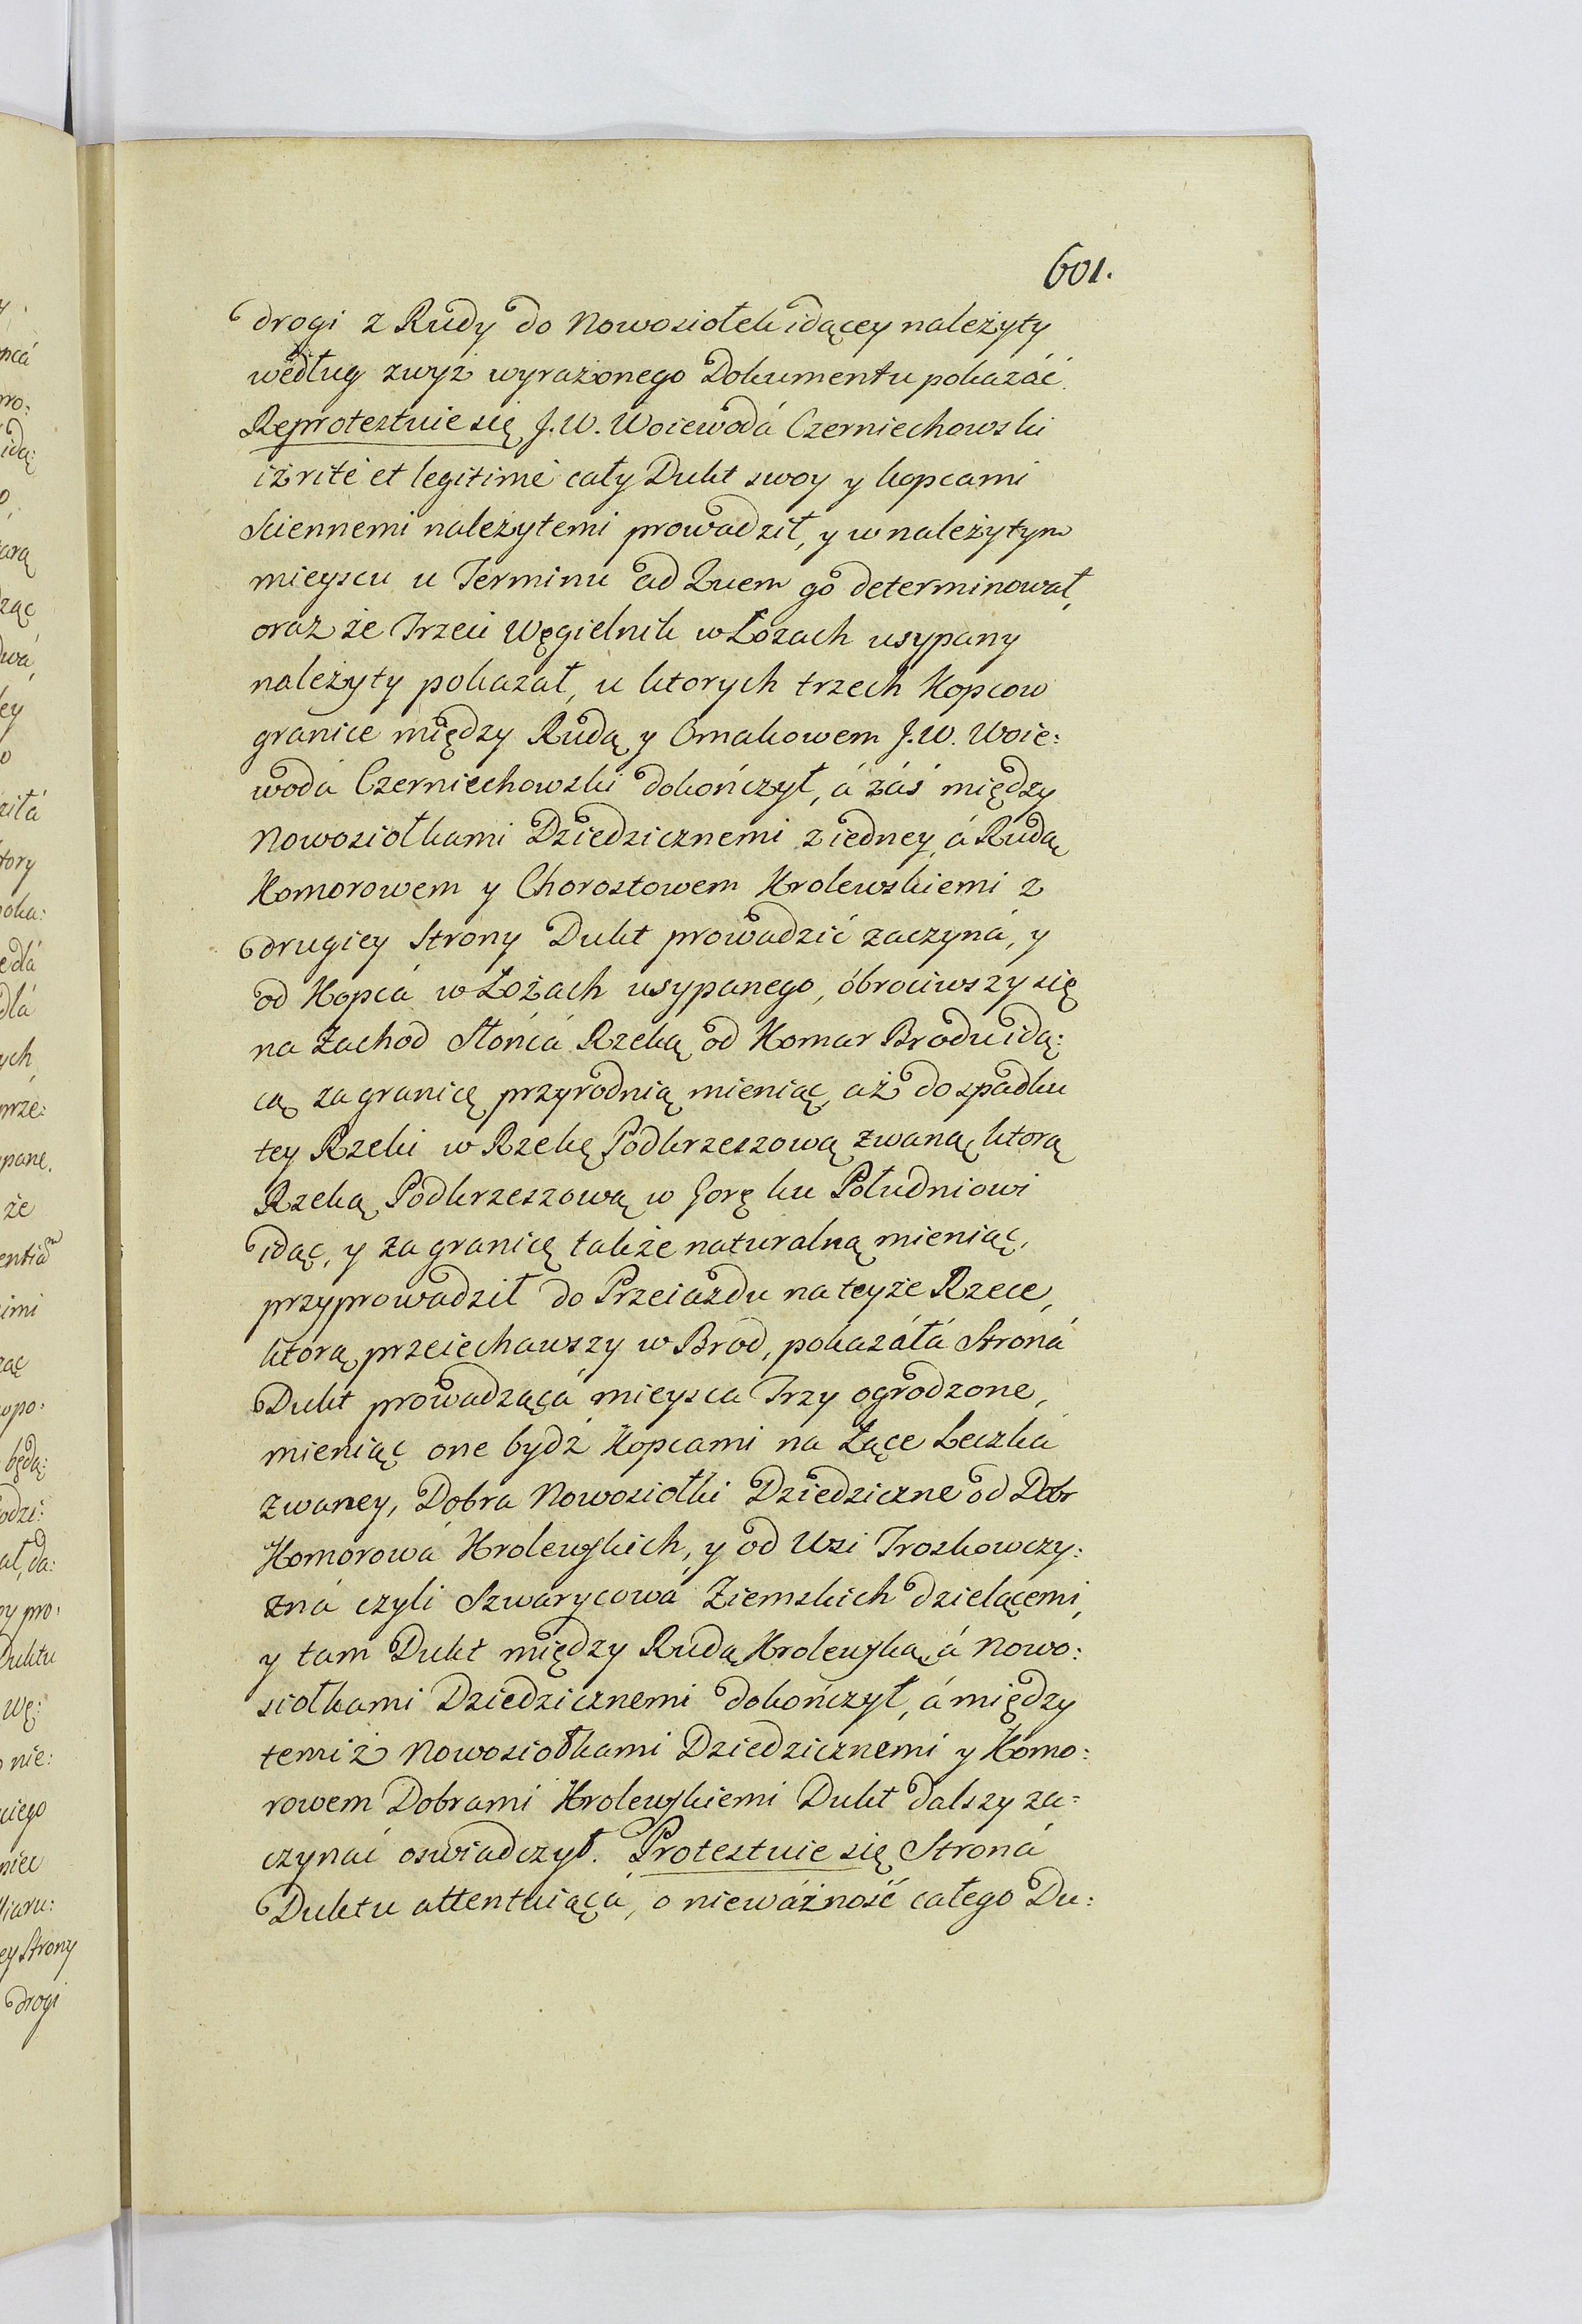 601.
drogi z Rudy do Nowosiołek idącey należyty
według zwyż wyrażonego Dokumentu pokazáć.
Reprotestuie się J.W. Woiewodá Czerniechowski
iż rité et legitimé cały Dukt swoy y kopcami
Sciennemi należytemi prowadził, y w należytym
mieyscu u Terminu ad Quem go determinował,
oraz że Trzeci Węgielnik w Łozach usypany
należyty pokazał, u ktorych trzech Kopcow
granice między Rudą y Omakowem J.W. Woie:
wodá Czerniechowski dokończył, á záś między
Nowosiołkami Dziedzicznemi z iedney á Rudą
Komorowem y Chorostowem Krolewskiemi z
drugiey Strony Dukt prowadzić zaczyná, y
od Kopcá w Łozách usypanego, óbrociwszy się
na Zachod Słońcá Rzeką od Komar Brodu idą:
cą za granicę przyrodnią mieniąc, aż do spadku
tey Rzeki w Rzekę Podkrzeszową zwaną, ktorą
Rzeką Podkrzeszową w Gorę ku Południowi
idąc, y za granicę także naturalną mieniąc,
przyprowadził do Przeiazdu na teyże Rzece,
ktorą przeiechawszy w Brod, pokazáłá Stroná
Dukt prowadzącá mieysca Trzy ogrodzone,
mieniąc one bydź Kopcami na Łące Leczká
zwaney, Dobra Nowosiołki Dziedziczne od Dobr
Komorowá Krolewskich, y od Wsi Troskowczy:
zná czyli Szwarycowá Ziemskich dzielącemi,
y tam Dukt między Rudą Krolewską, á Nowo:
siołkami Dziedzicznemi dokończył, á między
temiż Nowosiołkami Dziedzicznemi y Komo:
rowem Dobrami Krolewskiemi Dukt dalszy za:
czynać oswiadczył. Protestuie się Stroná
Duktu attentuiącá, o nieważność całego Du: